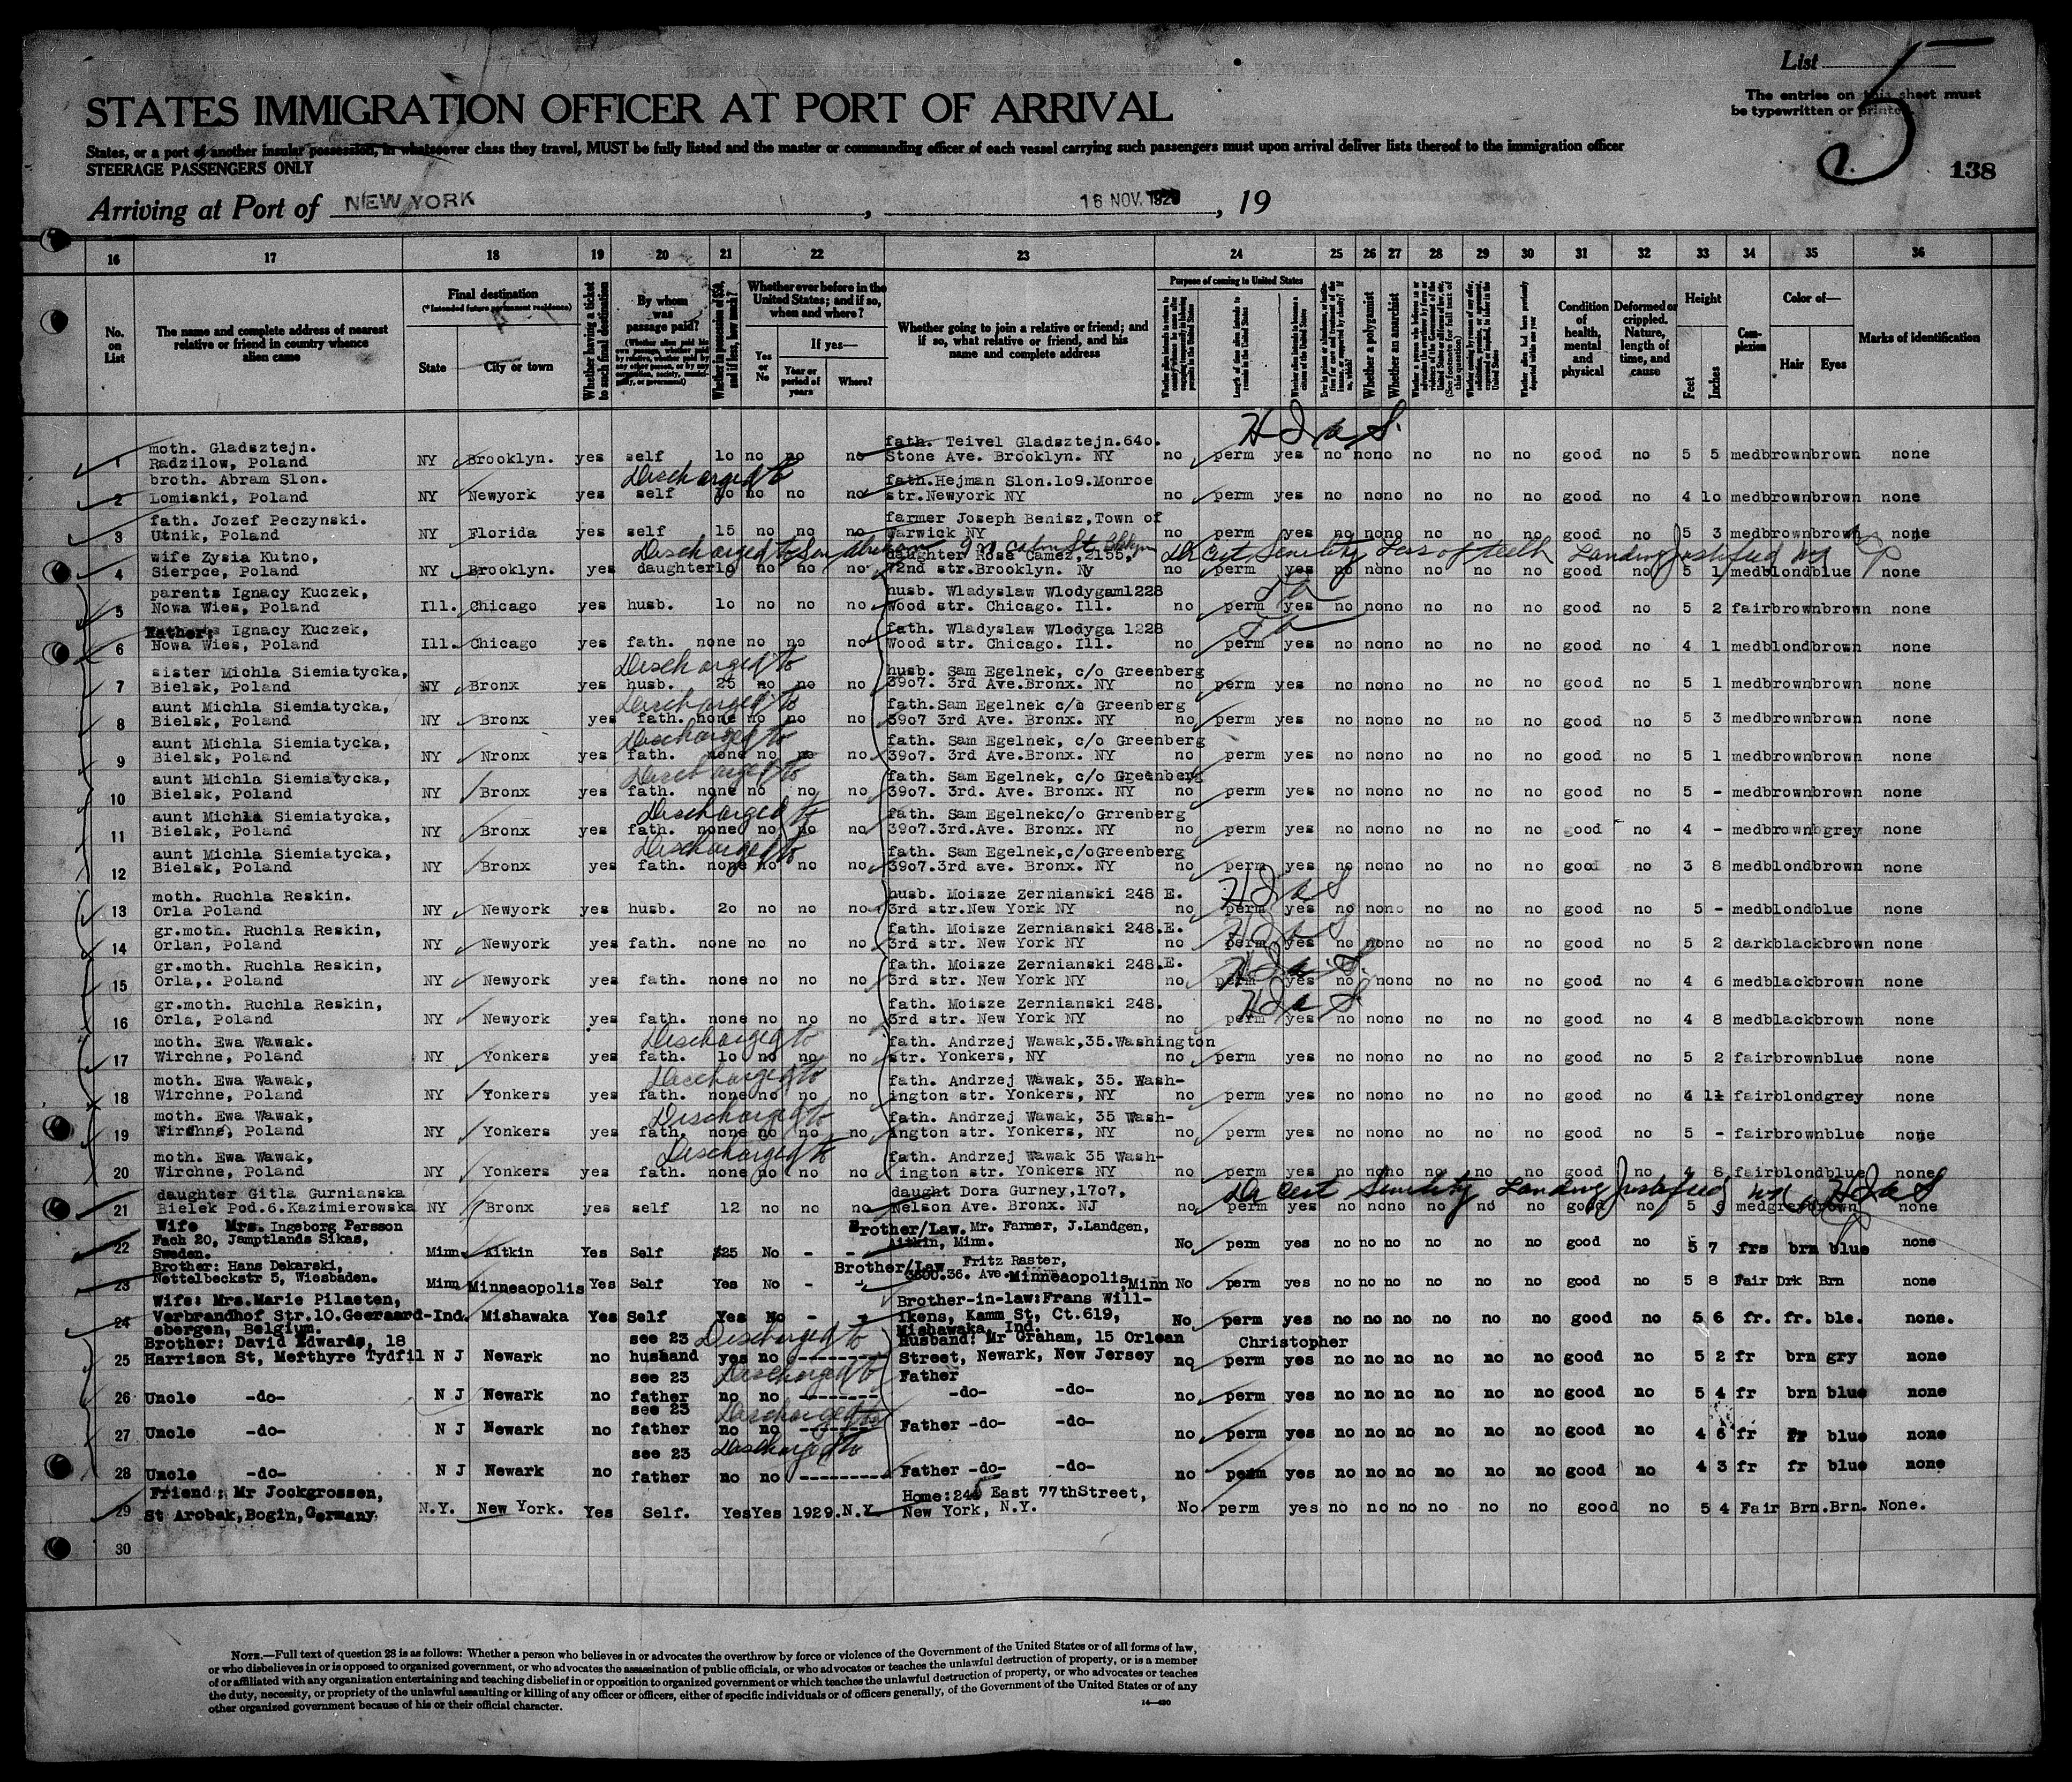 List 5
The entries on this sheet must
be typewritten or printed.
138
STATES IMMIGRATION OFFICER AT PORT OF ARRIVAL
States, or a port of another insular possession, in whatsoever class they travel, MUST be fully listed and the master or commanding officer of each vessel carrying such passengers must upon arrival deliver lists thereof to the immigration officer
STEERAGE PASSENGERS ONLY
Arriving at Port of NEW YORK , 16 NOV. 1929 , 19
16 17 18 19 20 21 22 23 24 25 26 27 28 29 30 31 32 33 34 35 36
No. on List
The name and complete address of nearest relative or friend in country whence alien came
Final destination
(*Intended future permanent residence)
State City or town
Whether having a ticket to such final destination
By whom was passage paid?
Whether in possession of $50, and if less, how much?
Whether ever before in the United States; and if so, when and where?
Yes or No
If yes—
Year or period of years Where?
Whether going to join a relative or friend; and if so, what relative or friend, and his name and complete address
Purpose of coming to United States
Whether a polygamist
Whether an anarchist
Condition of health, mental and physical
Deformed or crippled. Nature, length of time, and cause
Height
Feet Inches
Complexion
Color of—
Hair Eyes
Marks of identification
H I a S.
moth. Gladsztejn. fath. Teivel Gladsztejn.64o.
1 Radzilow, Poland NY Brooklyn. yes self 1o no no no Stone Ave. Brooklyn. NY no perm yes no nono no no no good no 5 5 medbrownbrown none
broth. Abram Slon. Discharged to fath.Hejman Slon.1o9.Monroe
2 Lomianki, Poland NY Newyork yes self no no no str.Newyork NY no perm yes no nono no no no good no 4 1o medbrownbrown none
fath. Jozef Peczynski. farmer Joseph Benisz,Town of
3 Utnik, Poland NY Florida yes self 15 no no no Warwick NY no perm yes no nono no no no good no 5 3 medbrownbrown none
wife Zysia Kutno, Discharged to Son daughter Rose Gamez,2155, Dr Cert Senility Loss of teeth Landing Justified
4 Sierpce, Poland NY Brooklyn. yes daughter1o no no no 72nd str.Brooklyn. Ny no perm yes no nono no no no good no 5 1 medblondblue none
parents Ignacy Kuczek, husb. Wladyslaw Wlodygam1228
5 Nowa Wies, Poland Ill. Chicago yes husb. 1o no no no Wood str. Chicago. Ill. no perm yes no nono no no no good no 5 2 fairbrownbrown none
Father: Ignacy Kuczek, fath. Wladyslaw Wlodyga 1228
6 Nowa Wies, Poland Ill. Chicago yes fath. none no no no Wood str. Chicago. Ill. no perm yes no nono no no no good no 4 1 medblondbrown none
sister Michla Siemiatycka, Discharged to husb. Sam Egelnek, c/o Greenberg
7 Bielsk, Poland NY Bronx yes husb. 25 no no no 39o7. 3rd Ave.Bronx. NY no perm yes no nono no no no good no 5 1 medbrownbrown none
aunt Michla Siemiatycka, Discharged to fath.Sam Egelnek c/o Greenberg
8 Bielsk, Poland NY Bronx yes fath. none no no no 39o7 3rd Ave. Bronx. NY no perm yes no nono no no no good no 5 3 medbrownbrown none
aunt Michla Siemiatycka, Discharged to fath. Sam Egelnek, c/o Greenberg
9 Bielsk, Poland NY Nronx yes fath. none no no no 39o7. 3rd Ave.Bronx. NY no perm yes no nono no no no good no 5 1 medbrownbrown none
aunt Michla Siemiatycka, Discharged to fath. Sam Egelnek, c/o Greenberg
10 Bielsk, Poland NY Bronx yes fath. none no no no 39o7. 3rd. Ave. Bronx. NY no perm yes no nono no no no good no 5 - medbrownbrown none
aunt Michla Siemiatycka, Discharged to fath. Sam Egelnekc/o Grrenberg
11 Bielsk, Poland NY Bronx yes fath. none no no no 39o7.3rd.Ave. Bronx. NY no perm yes no nono no no no good no 4 - medbrownbgrey none
aunt Michla Siemiatycka, Discharged to fath. Sam Egelnek,c/oGreenberg
12 Bielsk, Poland NY Bronx yes fath. none no no no 39o7.3rd ave. Bronx. NY no perm yes no nono no no no good no 3 8 medblondbrown none
moth. Ruchla Reskin. husb. Moisze Zernianski 248 E. H I a S
13 Orla Poland NY Newyork yes husb. 2o no no no 3rd str.New York NY no perm yes no nono no no no good no 5 - medblondblue none
gr.moth. Ruchla Reskin, fath. Moisze Zernianski 248.E. H I a S
14 Orlan, Poland NY Newyork yes fath. none no no no 3rd str. New York NY no perm yes no nono no no no good no 5 2 darkblackbrown none
gr.moth. Ruchla Reskin, fath. Moisze Zernianski 248.E. H I a S.
15 Orla,. Poland NY Newyork yes fath. none no no no 3rd str. New York NY no perm yes no nono no no no good no 4 6 medblackbrown none
gr.moth. Ruchla Reskin, fath. Moisze Zernianski 248. H I a S
16 Orla, Poland NY Newyork yes fath. none no no no 3rd str. New York NY no perm yes no nono no no no good no 4 8 medblackbrown none
moth. Ewa Wawak. Discharged to fath. Andrzej Wawak,35.Washington
17 Wirchne, Poland NY Yonkers yes fath. 1o no no no str. Yonkers, NY no perm yes no nono no no no good no 5 2 fairbrownblue none
moth. Ewa Wawak, Discharged to fath. Andrzej Wawak, 35. Wash-
18 Wirchne, Poland NY Yonkers yes fath. none no no no ington str. Yonkers, NY no perm yes no nono no no no good no 4 11 fairblondgrey none
moth. Ewa Wawak, Discharged to fath. Andrzej Wawak, 35 Wash-
19 Wirchne, Poland NY Yonkers yes fath. none no no no ington str. Yonkers, NY no perm yes no nono no no no good no 5 - fairbrownblue none
moth. Ewa Wawak, Discharged to fath. Andrzej Wawak 35 Wash-
20 Wirchne, Poland NY Yonkers yes fath. none no no no ington str. Yonkers NY no perm yes no nono no no no good no 4 8 fairblondblue none
daughter Gitla Gurnianska daught Dora Gurney,17o7, Dr Cert Senility Landing Justified H I a S
21 Bielek Pod.6.Kazimierowska NY Bronx yes self 12 no no no Nelson Ave. Bronx. NJ no perm yes no nono no no no good no 5 none
Wife Mrs. Ingeborg Persson Brother/Law. Mr. Farmer, J.Landgen,
22 Fach 20, Jamptlands Sikas, Sweden. Minn. Aitkin Yes Self $25 No - - Aitkin, Minn. No perm yes no no no no no no good no 5 7 frs brn blue none
Brother: Hans Dekarski, Brother/Law Fritz Raster,
23 Nettelbeckstr 5, Wiesbaden. Minn Minneapolis Yes Self Yes No - - 3800.36. Ave. Minneaopolis,Minn No perm yes no no no no no no good no 5 8 Fair Drk Brn none
Wife: Mrs.Marie Pilaeten, Brother-in-law:Frans Will-
24 Verbrandhof Str.10.Geeraard- Ind. Mishawaka Yes Self Yes No - - ikens, Kamm St, Ct.619, No perm yes no no no no no no good no 5 6 fr. fr. ble. none.
sbergen, Belgium. Mishawaka, Ind.
Brother: David Edwards, 18 see 23 Discharged to Husband: Mr Graham, 15 Orlean Christopher
25 Harrison St, Merthyre Tydfil N J Newark no husband yes no -------- Street, Newark, New Jersey no perm yes no no no no no no good no 5 2 fr brn gry none
see 23 Discharged to Father
26 Uncle -do- N J Newark no father no no -------- -do- -do- no perm yes no no no no no no good no 5 4 fr brn blue none
see 23 Discharged to
27 Uncle -do- N J Newark no father no no -------- Father -do- -do- no perm yes no no no no no no good no 4 6 fr fr blue none
see 23 Discharged to
28 Uncle -do- N J Newark no father no no --------- Father -do- -do- no perm yes no no no no no no good no 4 3 fr fr blue none
Friend: Mr Jockgrossen, Home: East 77thStreet,
29 St Arobak,Bogin,Germany. N.Y. New York. Yes Self. Yes Yes 1929. N.Y. New York, N.Y. No perm yes no no no no no no good no 5 4 Fair Brn. Brn. None.
30
NOTE.—Full text of question 28 is as follows: Whether a person who believes in or advocates the overthrow by force or violence of the Government of the United States or of all forms of law,
or who disbelieves in or is opposed to organized government, or who advocates the assassination of public officials, or who advocates or teaches the unlawful destruction of property, or is a member
of or affiliated with any organization entertaining and teaching disbelief in or opposition to organized government or which teaches the unlawful destruction of property, or who advocates or teaches
the duty, necessity, or propriety of the unlawful assaulting or killing of any officer or officers, either of specific individuals or of officers generally, of the Government of the United States or of any
other organized government because of his or their official character.
14—430